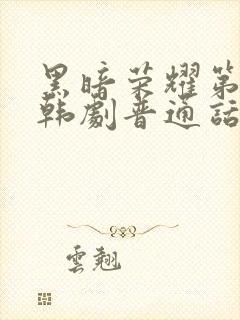 黑暗荣耀第
韩劇普通話
雲翹